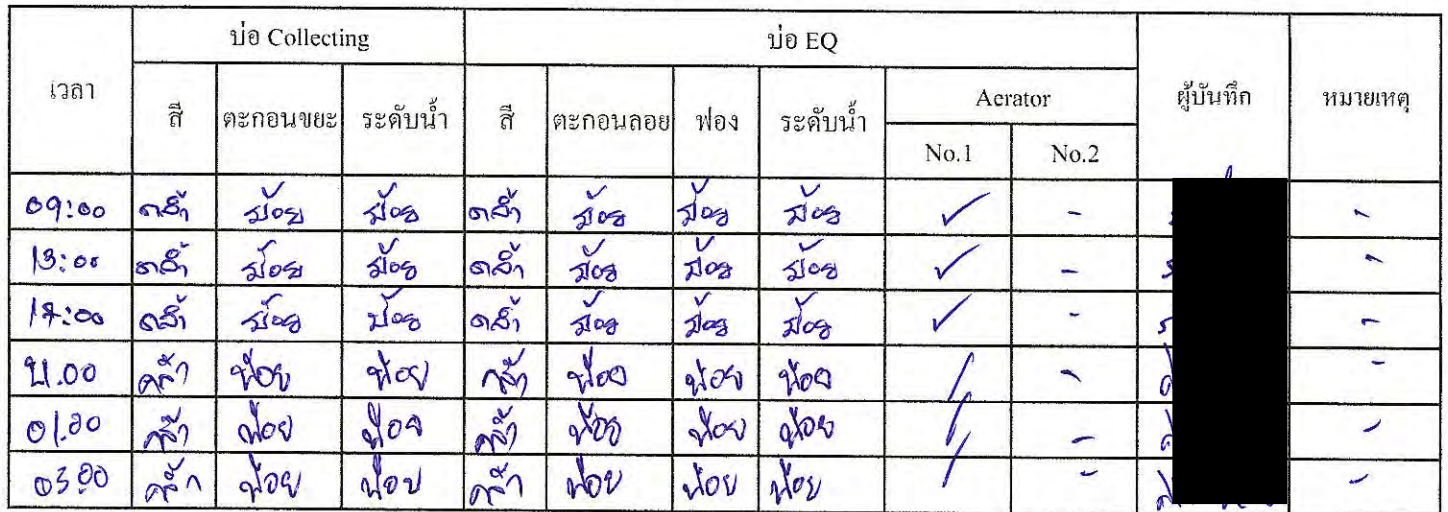 บ่อ Collecting บ่อ EQ
เวลา สี ตะกอนขยะ ระดับน้ำ สี ตะกอนลอย ฟอง ระดับน้ำ Aerator ผู้บันทึก หมายเหตุ
No.1 No.2
09:00 คล้ำ น้อย น้อย คล้ำ น้อย น้อย น้อย ✓ - -
13:00 คล้ำ น้อย น้อย คล้ำ น้อย น้อย น้อย ✓ - -
17:00 คล้ำ น้อย น้อย คล้ำ น้อย น้อย น้อย ✓ - -
21.00 คล้ำ น้อย น้อย คล้ำ น้อย น้อย น้อย / - -
01.00 คล้ำ น้อย น้อย คล้ำ น้อย น้อย น้อย / - -
05.00 คล้ำ น้อย น้อย คล้ำ น้อย น้อย น้อย / - -